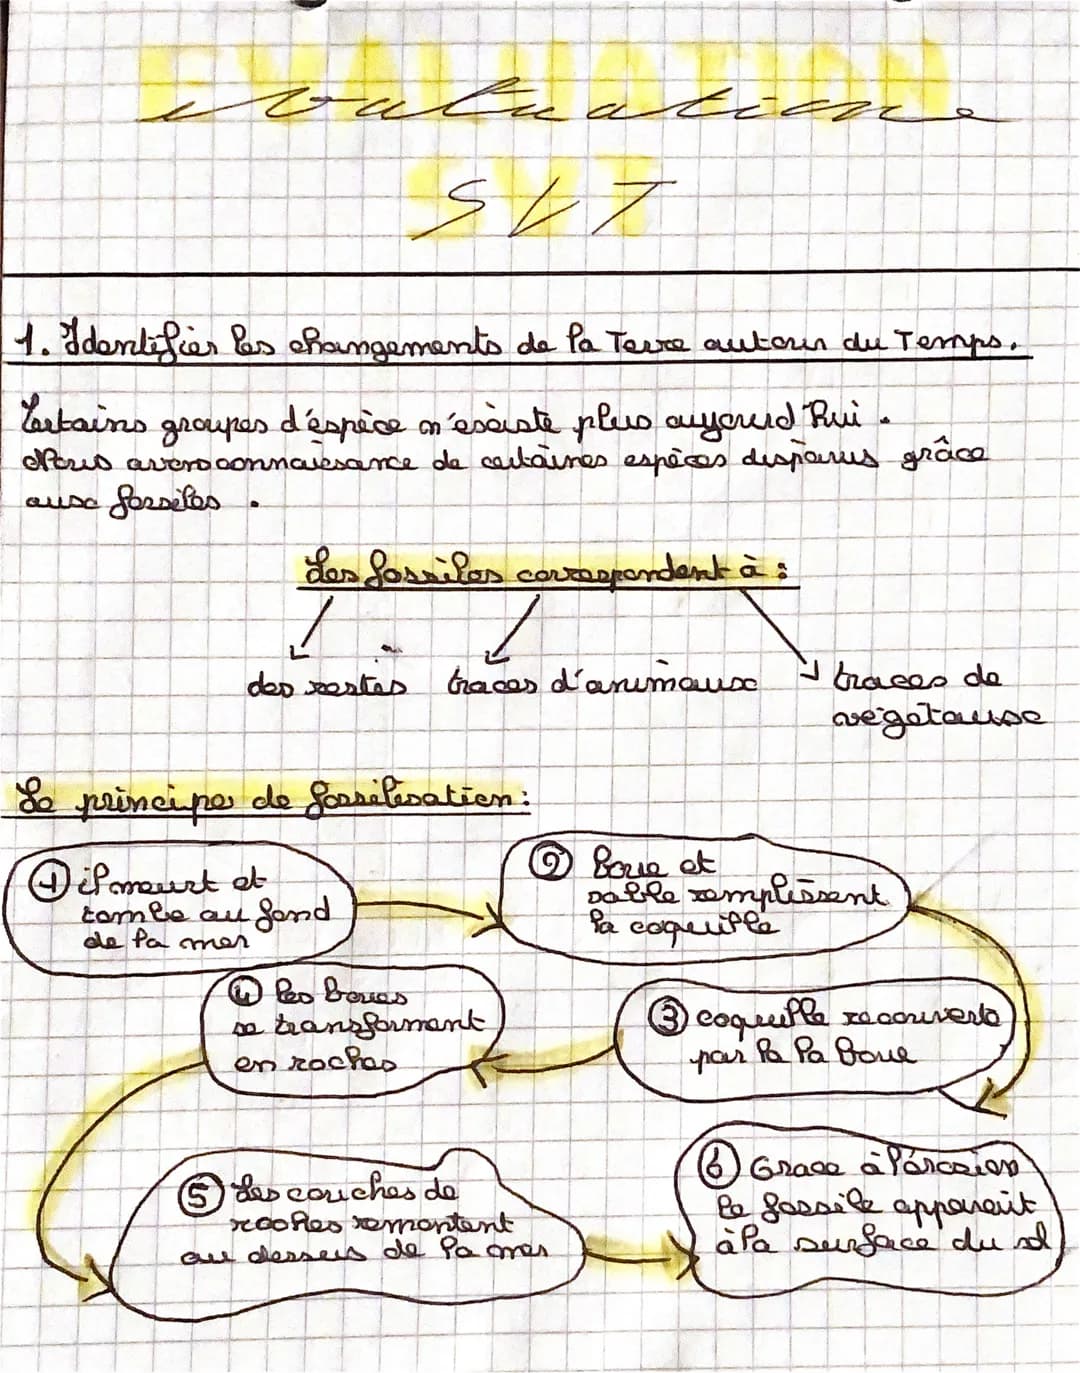 EVALUATION
evaluation
SVT
1. Identifier les changements de la Terre autour du Temps.
Certains groupes d'éspèce n'existe plus aujourd'hui.
Nous avons connaissance de certaines espèces disparus grâce
aux fossiles.
Les fossiles correspondent à :
des restes traces d'animaux traces de
végétaux
Le principe de fossilisation :
① il meurt et
tombe au fond
de la mer
② Boue et
sable remplissent
la coquille
③ coquille recouverte
par la la boue
④ les boues
se transforment
en roches
⑤ Les couches de
roches remontent
au dessus de la mer
⑥ Grace à l'érosion
le fossile apparait
à la surface du sol